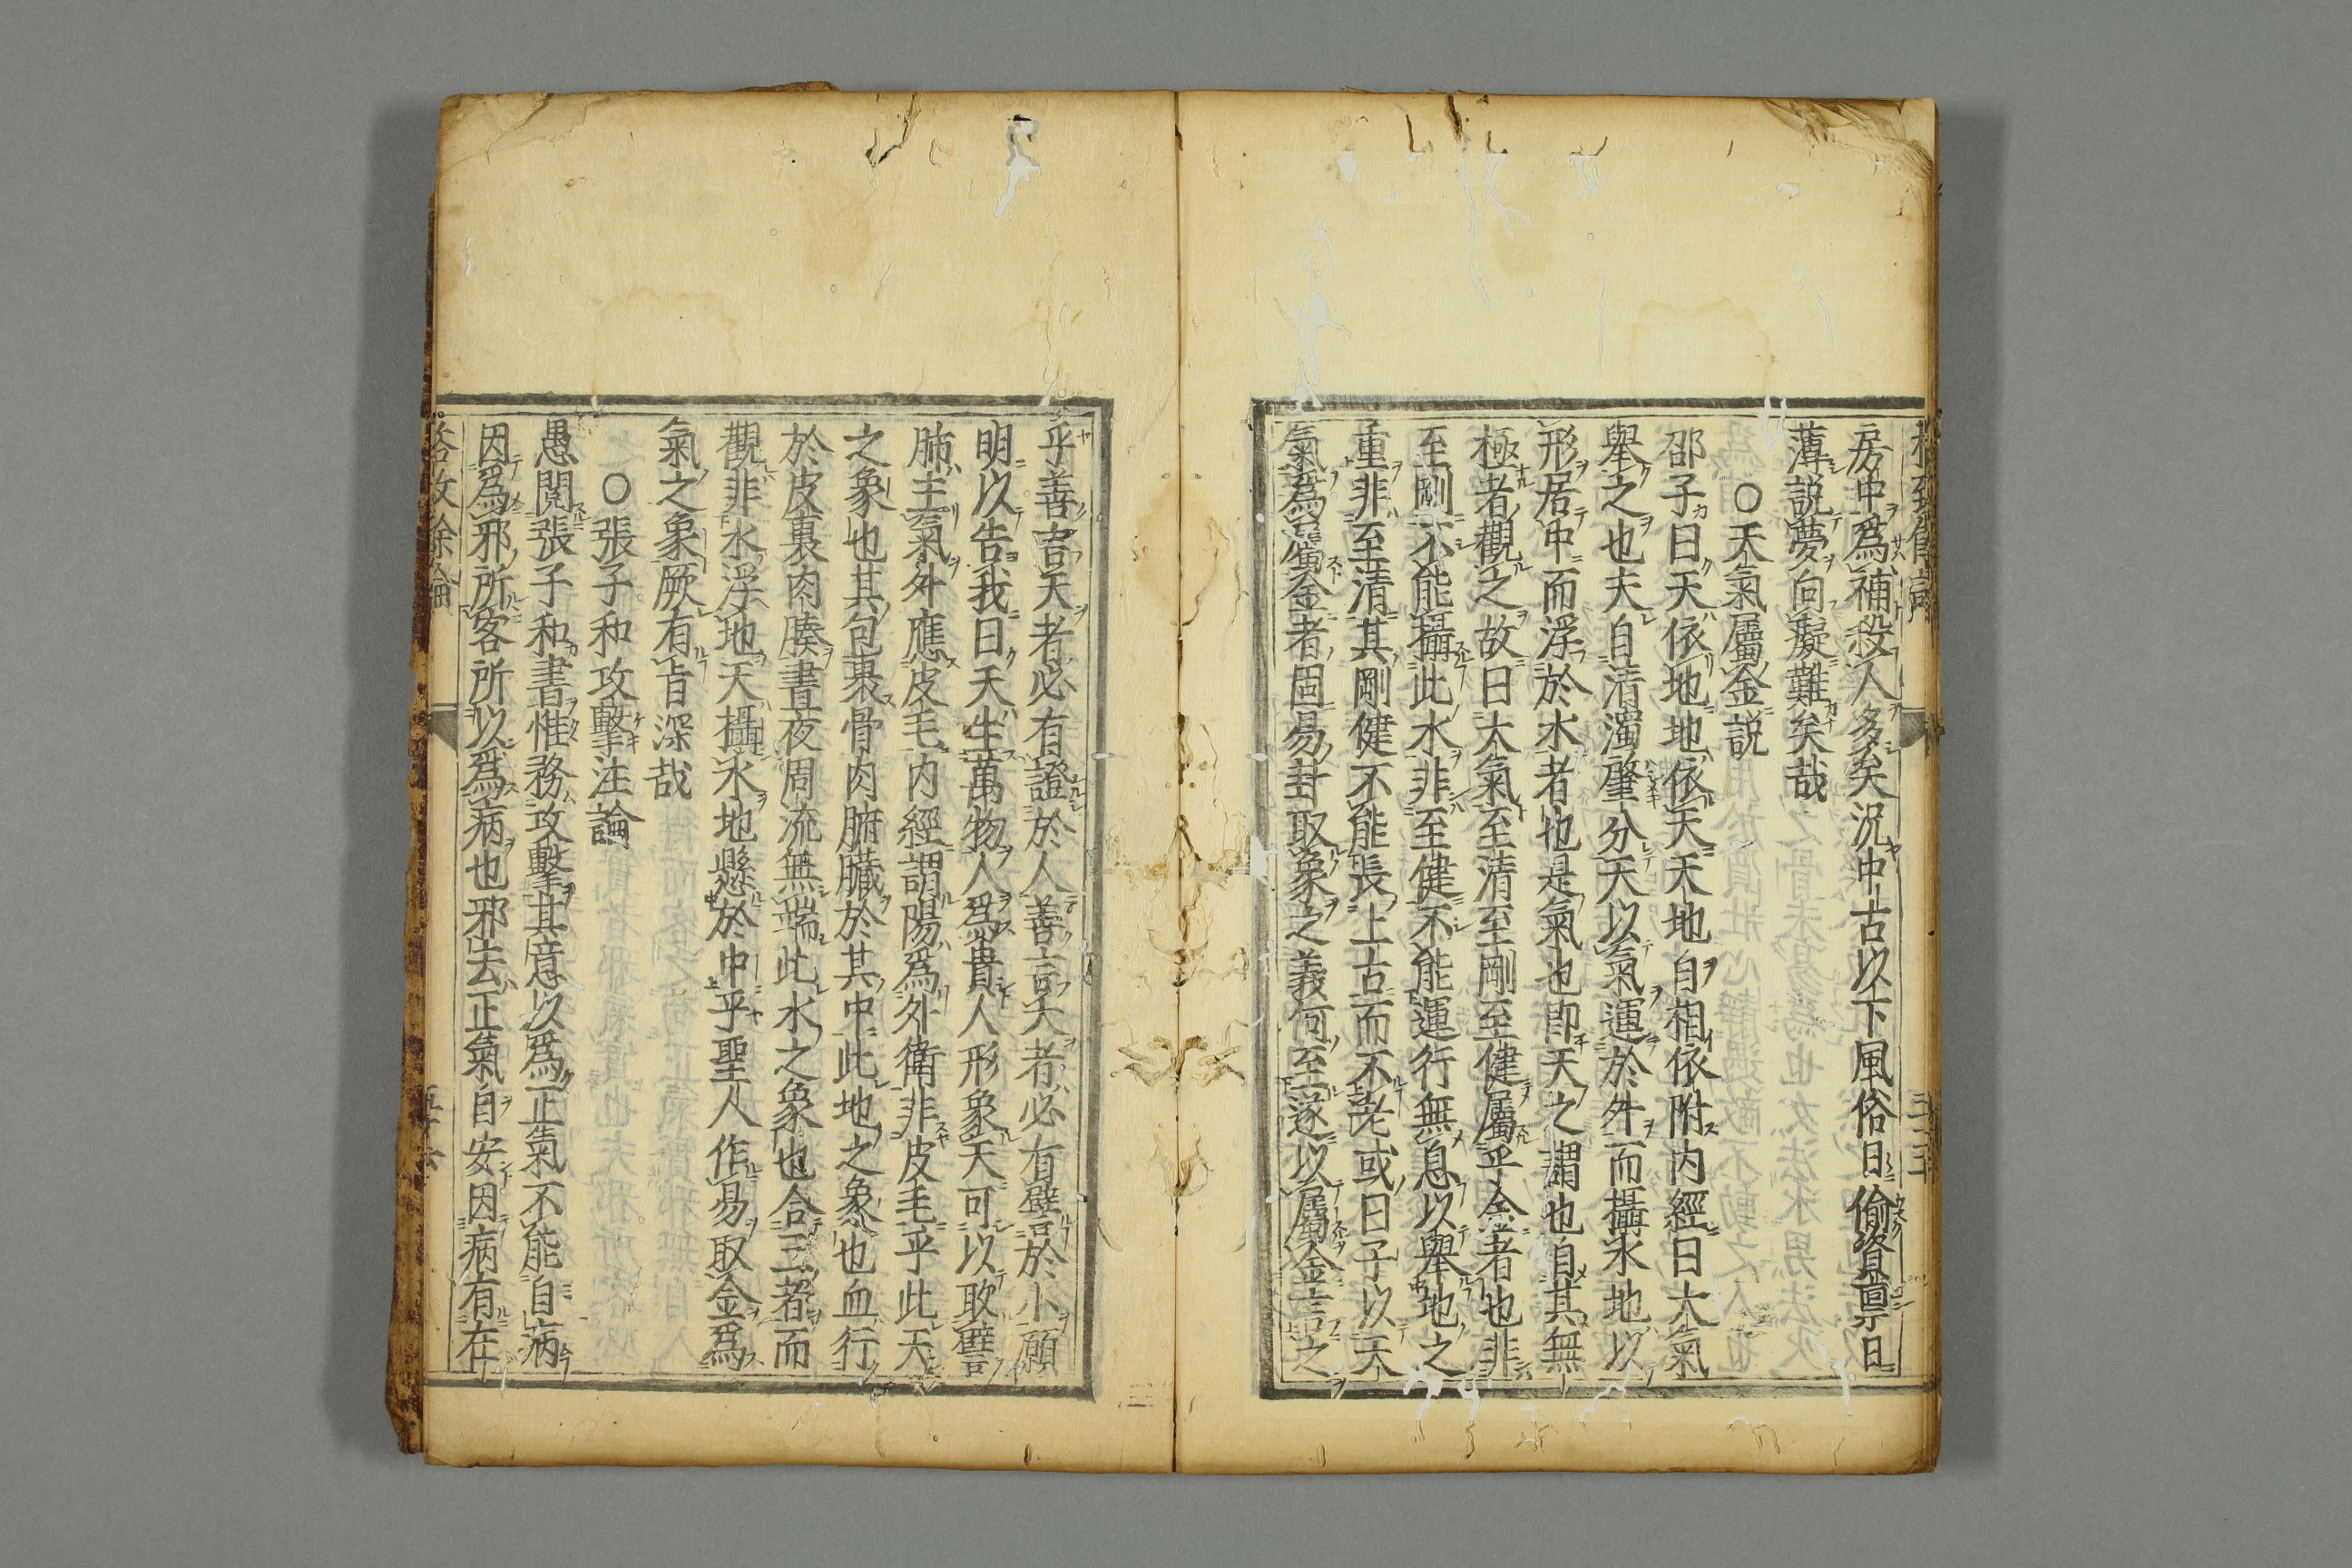 房中爲補殺人多矣況中古以下風俗日偷資禀日
薄説夢向癡難矣哉
○天氣屬金説
邵子曰天依地地依天天地自相依附内經曰大氣
舉之也夫自清濁肇分天以氣運於外而攝水地以
形居中而浮於水者也是氣也即天之謂也自其無
極者觀之故曰大氣至清至剛至健屬乎金者也非
至剛不能攝此水非至健不能運行無息以舉地之
重非至清其剛健不能長上古而不老或曰子以天
氣爲屬金者固易卦取象之義何至遂以屬金言之
乎善言天者必有證於人善言天者必有譬於小願
明以告我曰天生萬物人爲貴人形象天可以取譬
肺主氣外應皮毛内經謂陽爲外衛非皮毛乎此天
之象也其包裹骨肉腑臟於其中此地之象也血行
於皮裏肉腠晝夜周流無端此水之象也合三者而
觀非水浮地天攝水地懸於中乎聖人作易取金爲
氣之象厥有旨深哉
○張子和攻擊注論
愚閲張子和書惟務攻擊其意以爲正氣不能自病
因爲邪所客所以爲病也邪去正氣自安因病有在
格致餘論